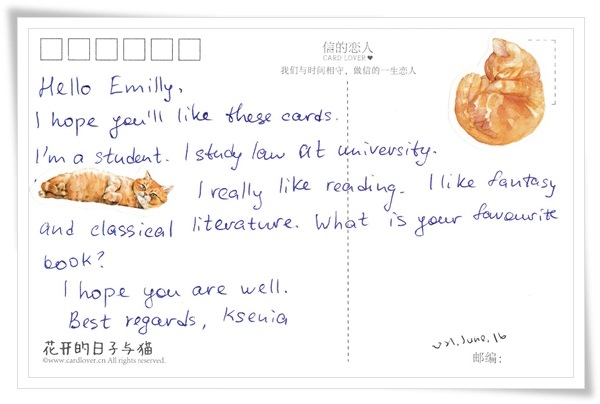 信的恋人
CARD LOVER♥
我们与时间相守，做信的一生恋人
Hello Emilly,
I hope you'll like these cards.
I'm a student. I study law at university.
I really like reading. I like fantasy
and classical literature. What is your favourite
book?
I hope you are well.
Best regards, Ksenia
花开的日子与猫
©www.cardlover.cn All rights reserved.
June, 16
邮编: